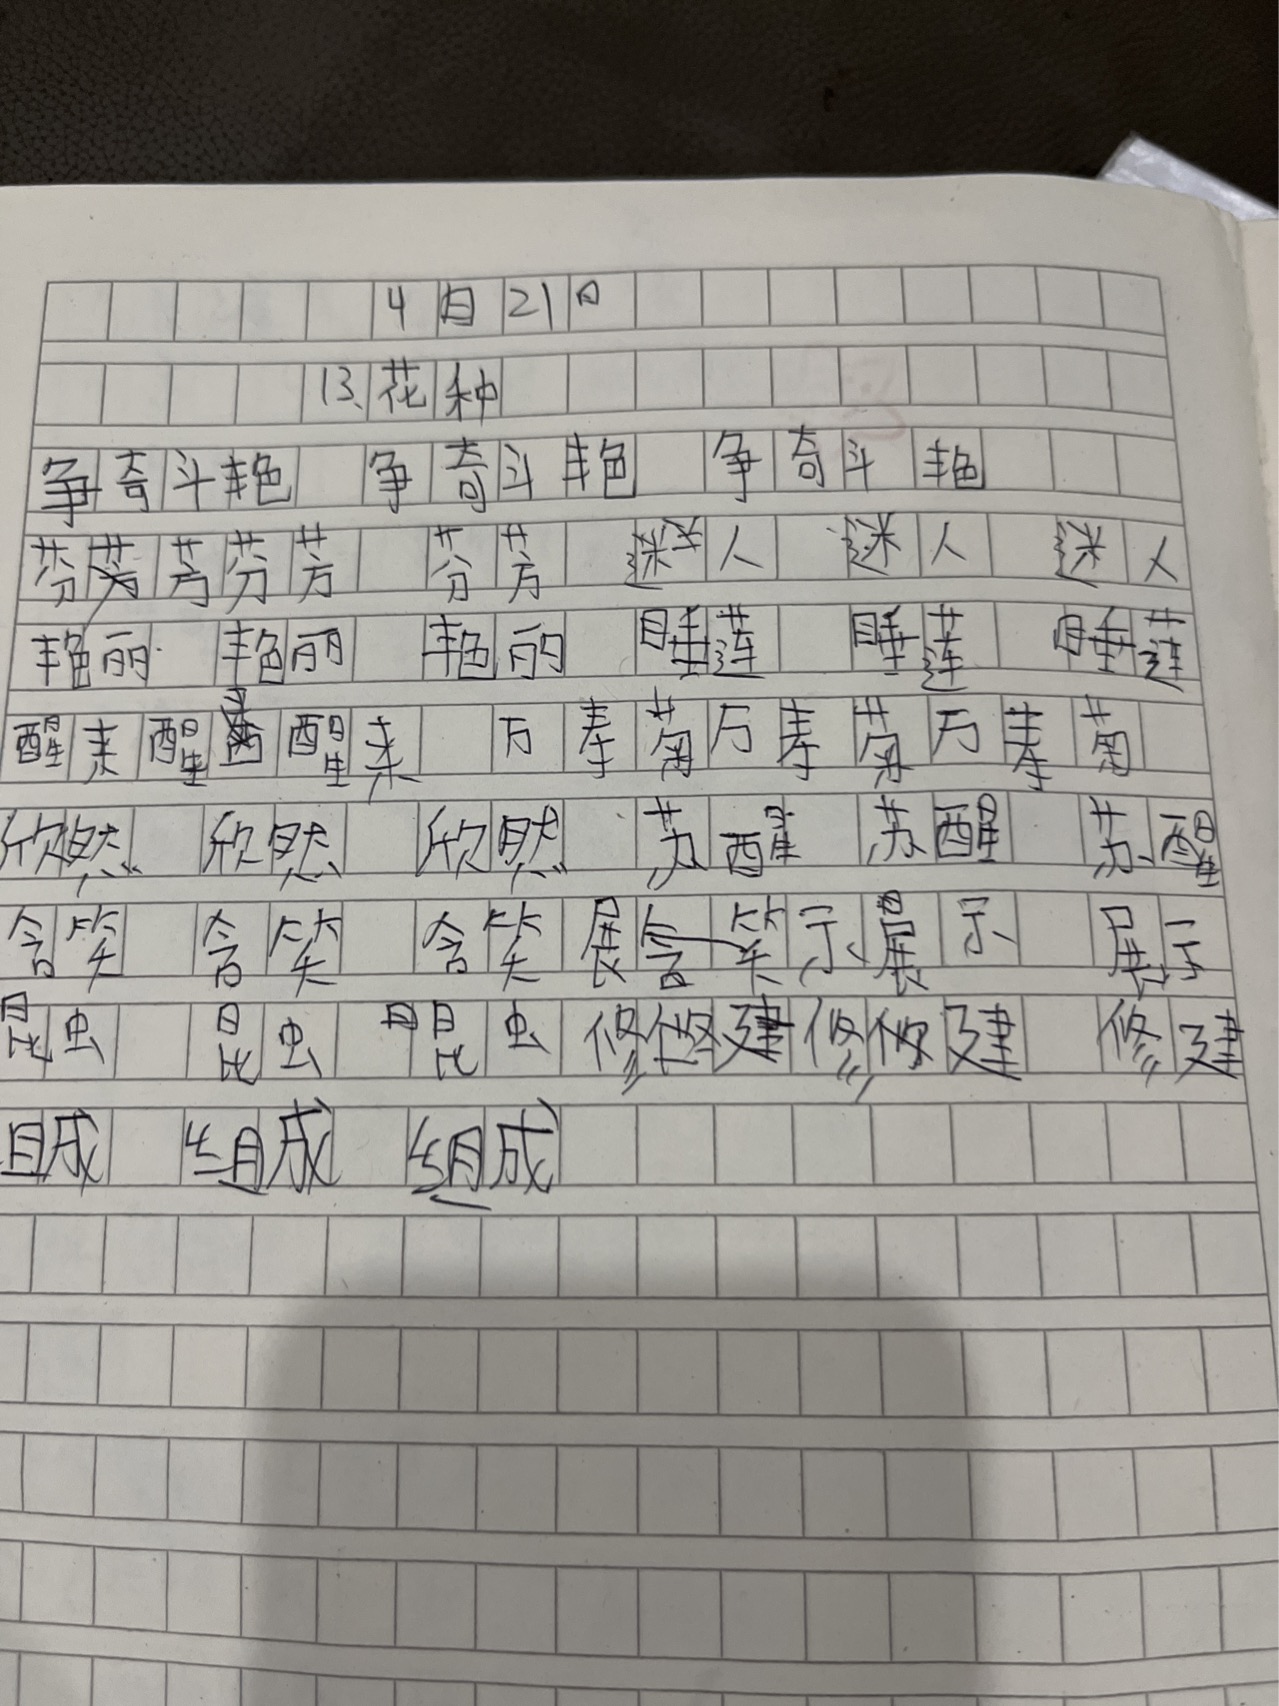 4月21日
13、花种
争奇斗艳 争奇斗艳 争奇斗艳
芬芳芬芳 芬芳 迷人 迷人 迷人
艳丽 艳丽 艳丽 睡莲 睡莲 睡莲
醒来醒醒来 万寿菊万寿菊万寿菊
欣然 欣然 欣然 苏醒 苏醒 苏醒
含笑 含笑 含笑展示展示 展示
昆虫 昆虫 昆虫 修建修建 修建
组成 组成 组成